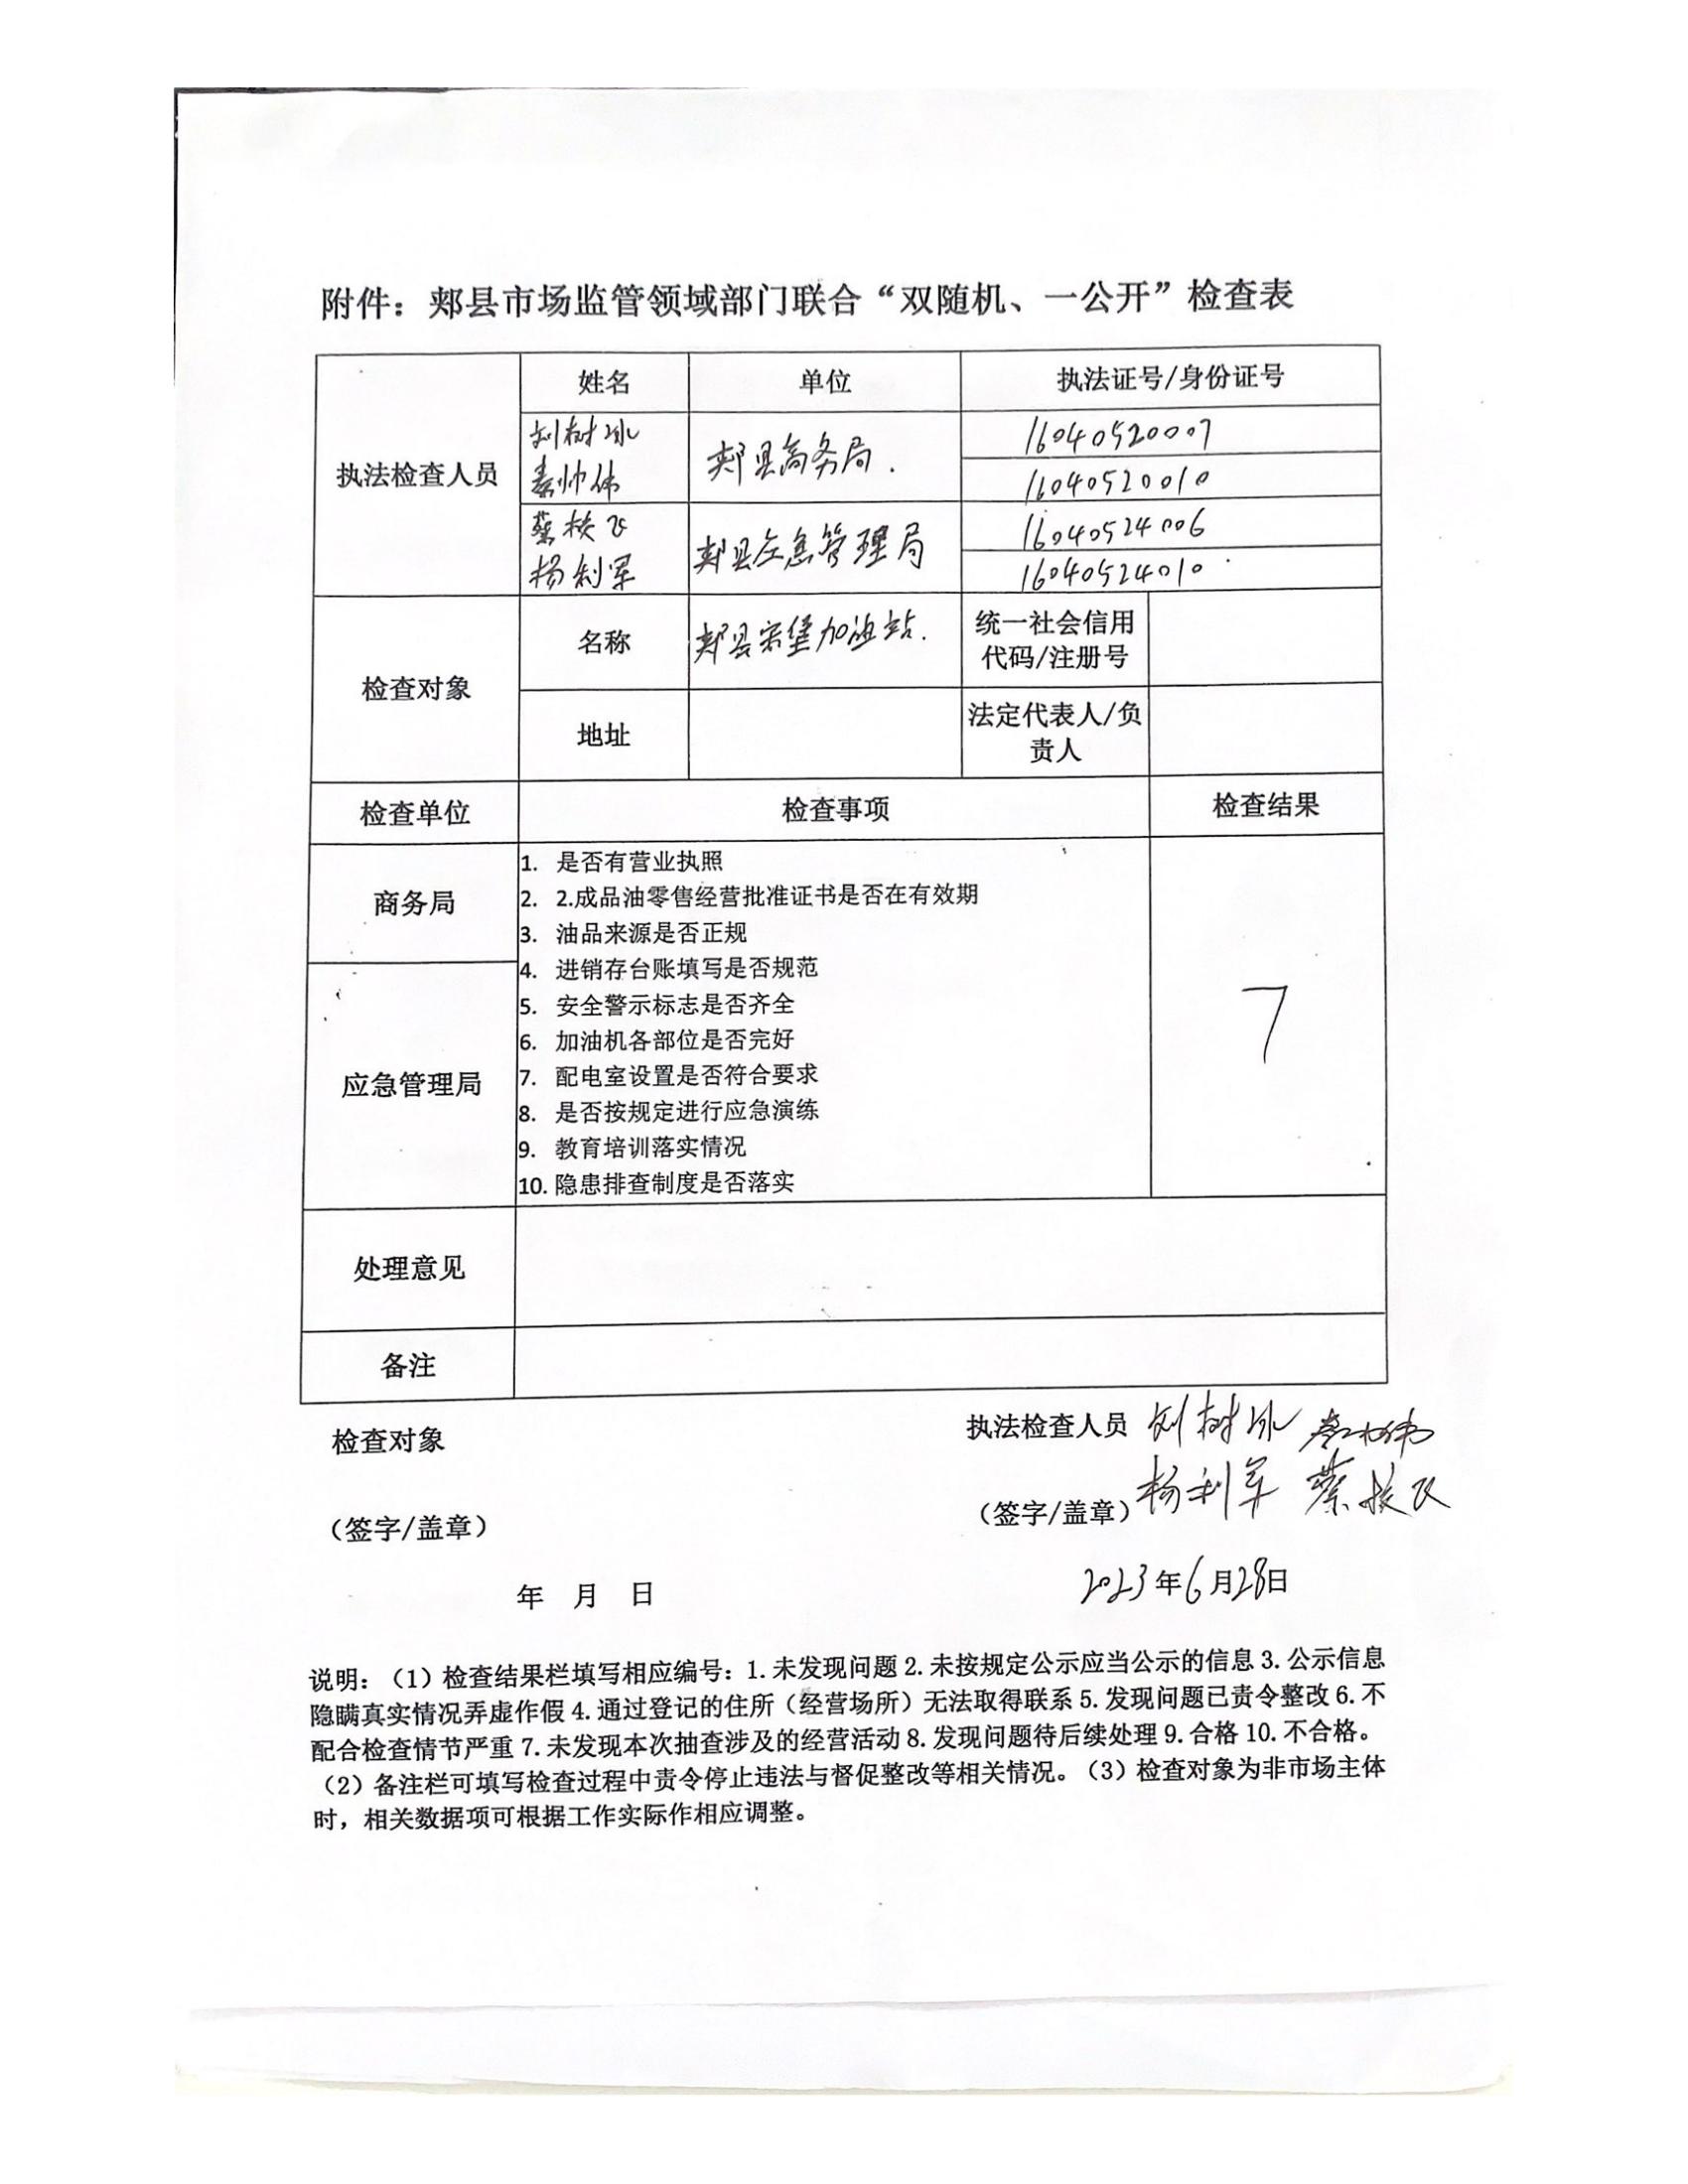 附件：郏县市场监管领域部门联合“双随机、一公开”检查表
执法检查人员
姓名
单位
执法证号/身份证号
刘树冰
秦帅伟
郏县商务局.
16040520007
16040520010
蔡 飞
杨利军
郏县应急管理局
16040524006
16040524010
检查对象
名称
郏县宋堡加油站.
统一社会信用
代码/注册号
地址
法定代表人/负
责人
检查单位
检查事项
检查结果
商务局
应急管理局
1. 是否有营业执照
2. 2.成品油零售经营批准证书是否在有效期
3. 油品来源是否正规
4. 进销存台账填写是否规范
5. 安全警示标志是否齐全
6. 加油机各部位是否完好
7. 配电室设置是否符合要求
8. 是否按规定进行应急演练
9. 教育培训落实情况
10. 隐患排查制度是否落实
7
处理意见
备注
检查对象
（签字/盖章）
年 月 日
执法检查人员 刘树冰 秦帅伟
（签字/盖章）杨利军 蔡 飞
2023年6月28日
说明：（1）检查结果栏填写相应编号：1.未发现问题2.未按规定公示应当公示的信息3.公示信息
隐瞒真实情况弄虚作假4.通过登记的住所（经营场所）无法取得联系5.发现问题已责令整改6.不
配合检查情节严重7.未发现本次抽查涉及的经营活动8.发现问题待后续处理9.合格10.不合格。
（2）备注栏可填写检查过程中责令停止违法与督促整改等相关情况。（3）检查对象为非市场主体
时，相关数据项可根据工作实际作相应调整。